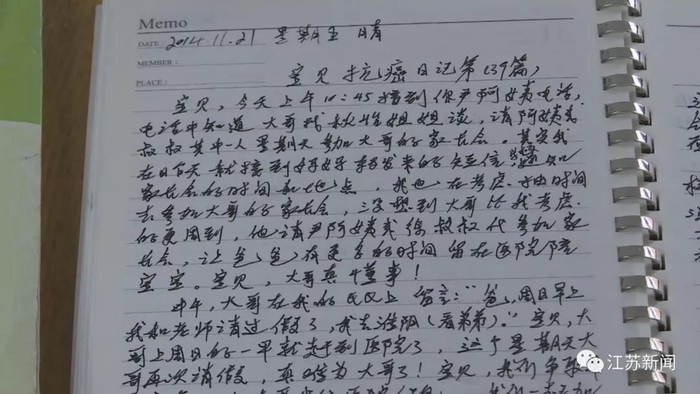 Memo
DATE: 2014.11.21 星期五 晴
MEMBER:
PLACE: 宝贝抗癌日记第(39篇)
宝贝,今天上午10:45接到你尹阿姨电话,
电话中知道大哥找秋姐姐谈,请阿姨或
叔叔其中一人星期天参加大哥的家长会。其实我
在日前天就接到好好转发来的短信,通知
家长会的时间和地点,我也在考虑抽时间
去参加大哥的家长会,没想到大哥比我考虑
的更周到,他请尹阿姨或徐叔叔代参加家
长会,让爸爸有更多的时间留在医院陪
宝宝。宝贝,大哥真懂事!
中午,大哥在我的QQ上留言:“爸,周日早上
我和老师请过假了,我去淮阴(看弟弟)。”宝贝,大
哥上周日的一早就赶到医院了,这个星期天大
哥再次请假,真难为大哥了!宝贝,我们争取
江苏新闻